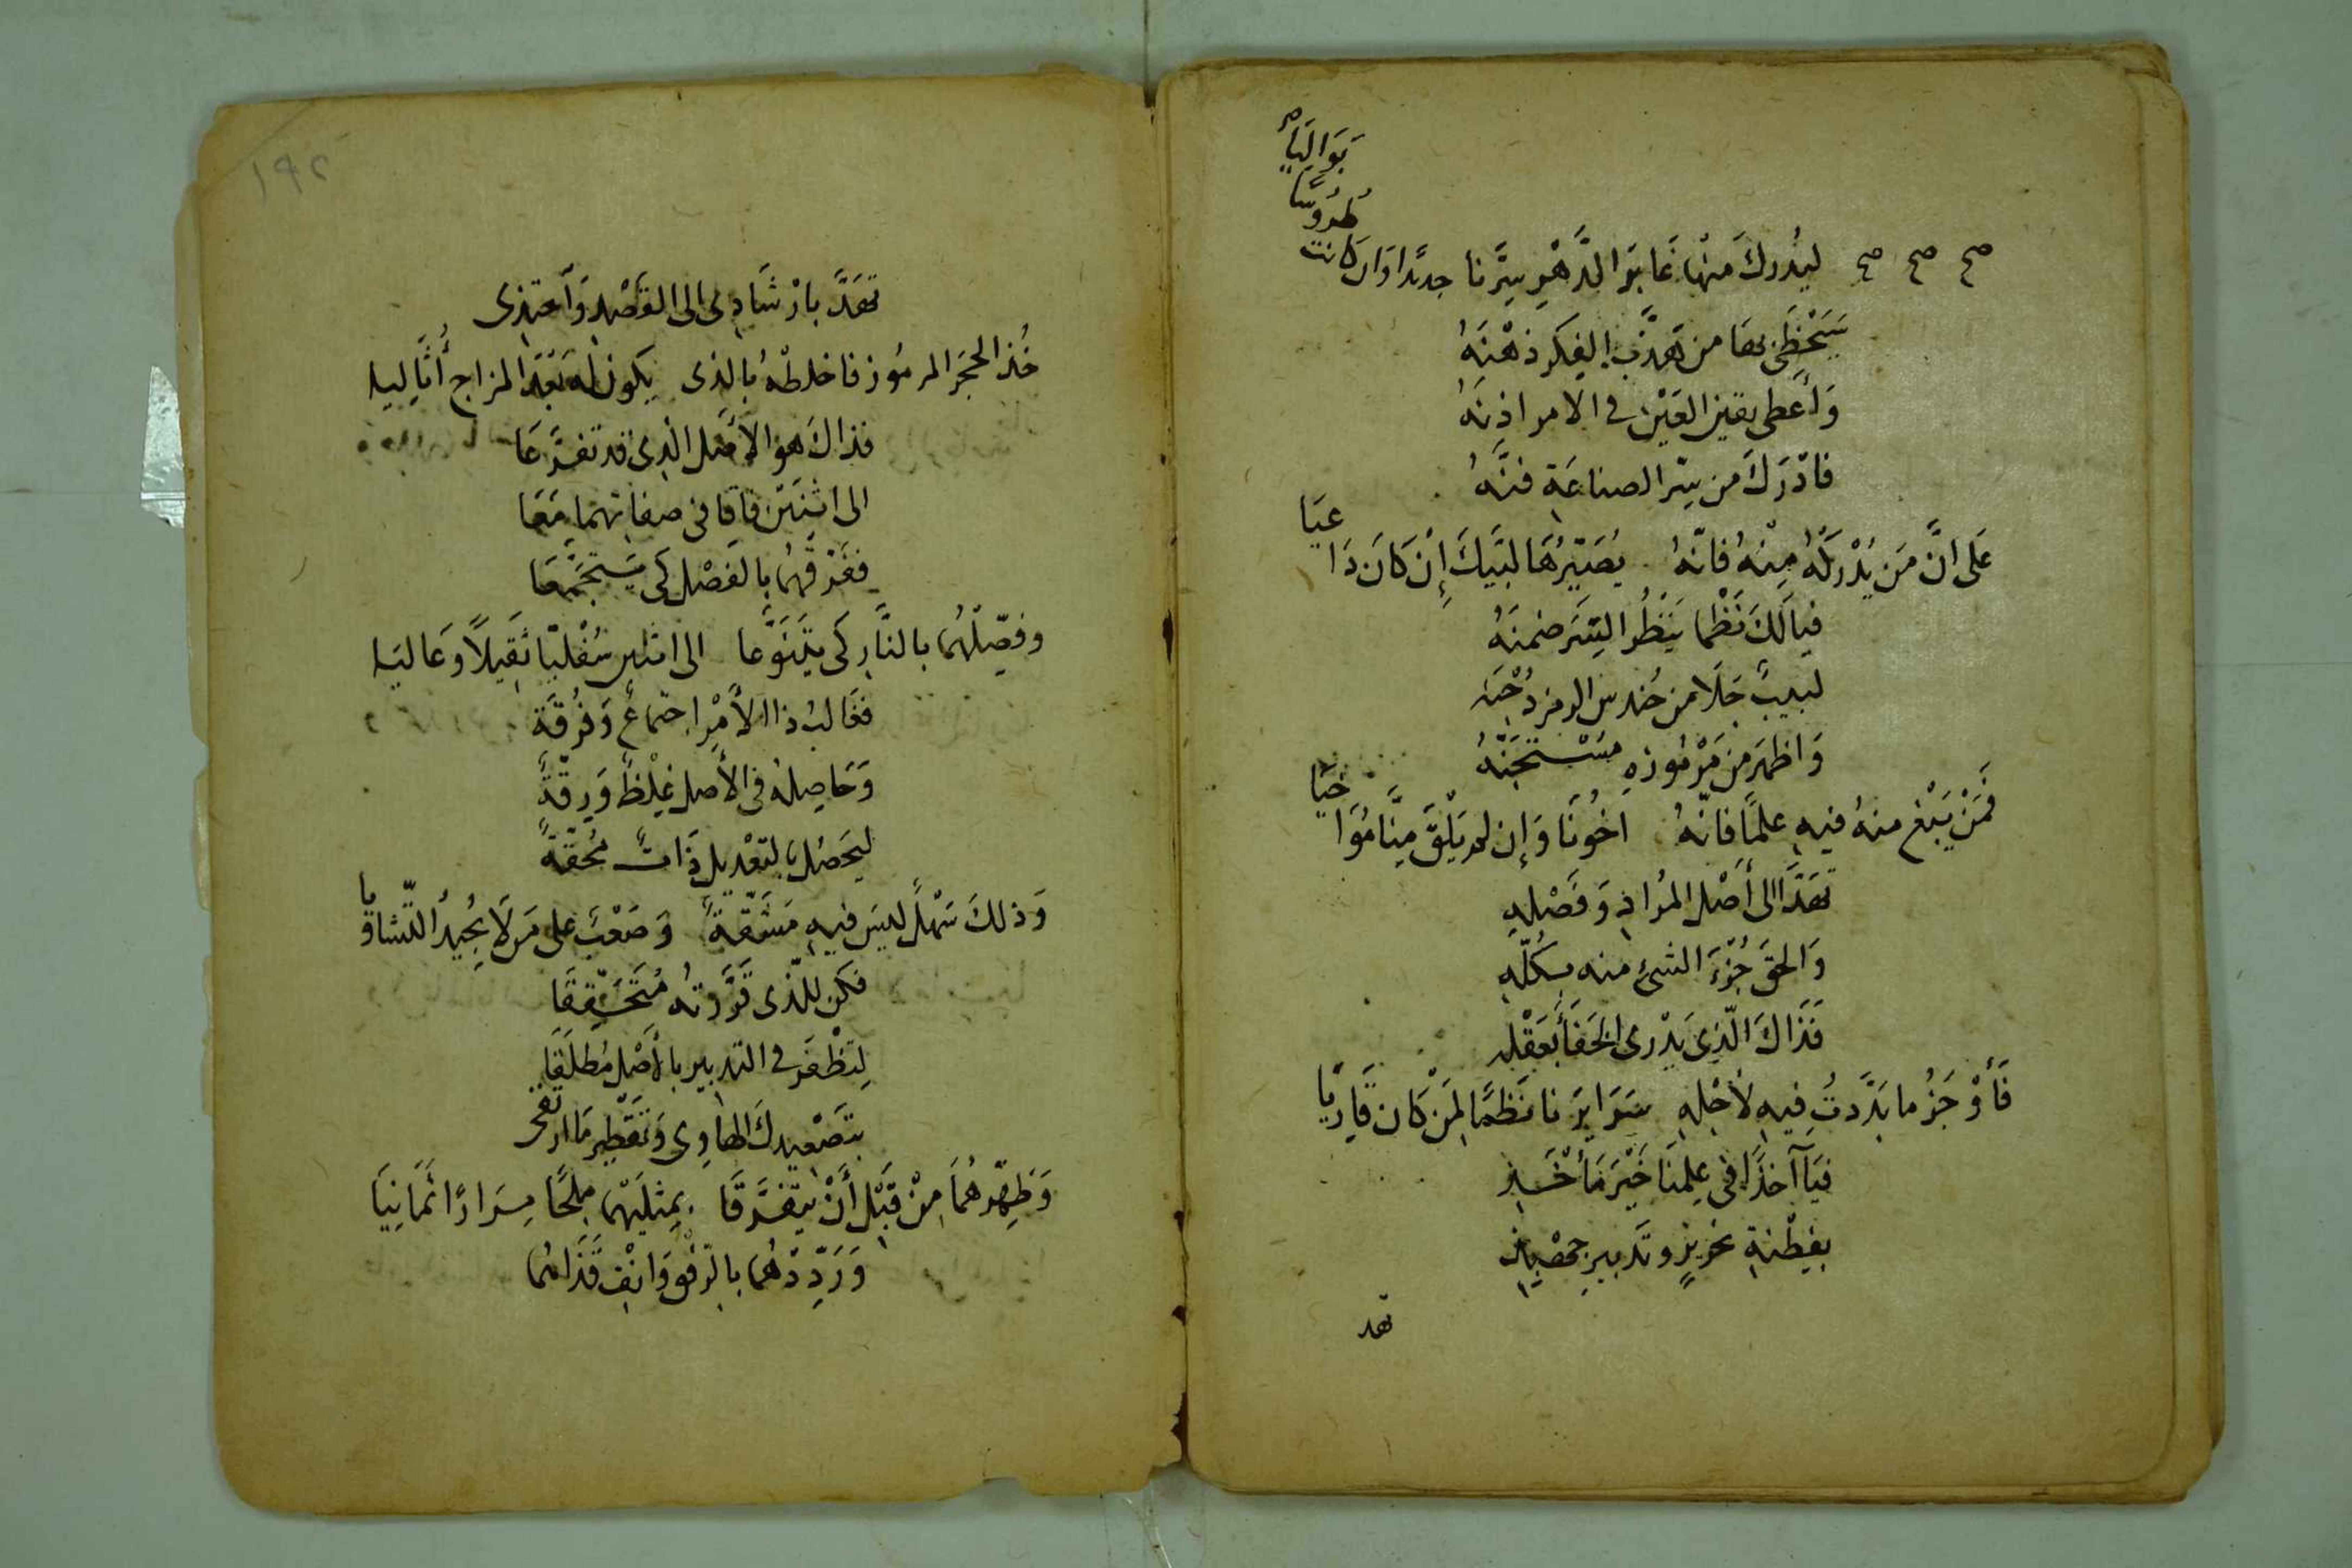 صح صح صح ليُدركَ منْها غَابرَ الدَّهْرِ سِرَّنا جديدًا وَان كانت طُرُوسًا بَوَاليَا
سَيَحْظَى بها من هذَّب الفكر ذهْنَهُ
وَأَعطى يقين العَيْن في الامر اذنَهُ
فادْرَكَ من سِرّ الصناعَةِ فنَّهُ
عَلى انَّ مَن يُدْركْهُ مِنْهُ فانّهُ يُصَيّرُهَا لبَّيكَ إِنْ كَانَ دَاعيَا
فيا لَكَ نَظْما يَنْظُر السِّرَ ضمنَهُ
لبيبٌ جَلَا من حُندس الرمز دُجْنَه
وَاظهَر من مَرْمُوزهِ مسْتجنَّهُ
فَمَنْ يَبْغ منهُ فيهِ علمًا فانّهُ اخُونَا وَإن لم يَلْقَ مِنَّا مُوَاخيَا
تهَدَّ الى أَصْل المُراد وَفَصْلهِ
وَالحق جُزْءَ الشئ منه بكُلّهِ
فَذَاكَ الّذِى يَدْرى الخَفَا بعَقْله
فَأَوْجَزُ ما بَرَّدتُ فيهِ لأجْلهِ سَرَايرَنا نَظمًا لمَنْ كان قَارِيَا
فيَا آخذًا في عِلمنَا خَيْرَ مَأْخَذِ
بفِطْنةِ نحْرِيرٍ وتَدبيرِ جهْبِذِ
تهد
١٩٢
تهَدَّ بارْشَادِى الى القَصْدِ وَآحْتذِى
خُذ الحجَر المرمُوز فاخلطْهُ بالذى يكون له بَعْدَ المزاج أُثَاليَا
فذاكَ هوَ الأَصْل الذِى قد تفرَّعَا
الى اثنَيْن فاقا في صفاتهمَا مَعَا
ففرّقهُما بالفَصْل كي يستجمَّعَا
وفصِّلْهُما بالنَّار كَى يتَنَوَّعا الى اثنين سُفْليًّا ثَقيلاً وعَاليَا
فغَالبُ ذا الأَمْر اجتماعٌ وَفُرْقَةٌ
وَحَاصِلهُ فى الأَصل غِلْظٌ وَرِقّةٌ
ليَحصُل بالتعْديلِ ذَاتٌ مُحقّةٌ
وَذلكَ سَهْلٌ ليسَ فيهِ مَشَقّةٌ وَصَعْبٌ على مَن لَا يجُيدُ التّشاقيَا
فكن للّذى قرَّرتُه مُتَحَقِّقَا
لِتظْفَر في التدبير بالأَصْل مُطلَقَا
بتَصْعِيدكَ الهاوِى وَتَقْطِير مَا ارتقى
وَطَهِّرهُمَا مِنْ قَبْل أَنْ يتفرَّقَا بمِثلَيْهما مِلحًا مِرَارًا ثمَانيَا
وَرَدِّدْهُما بالرّفْق وَانْفِ قَذَاهُما